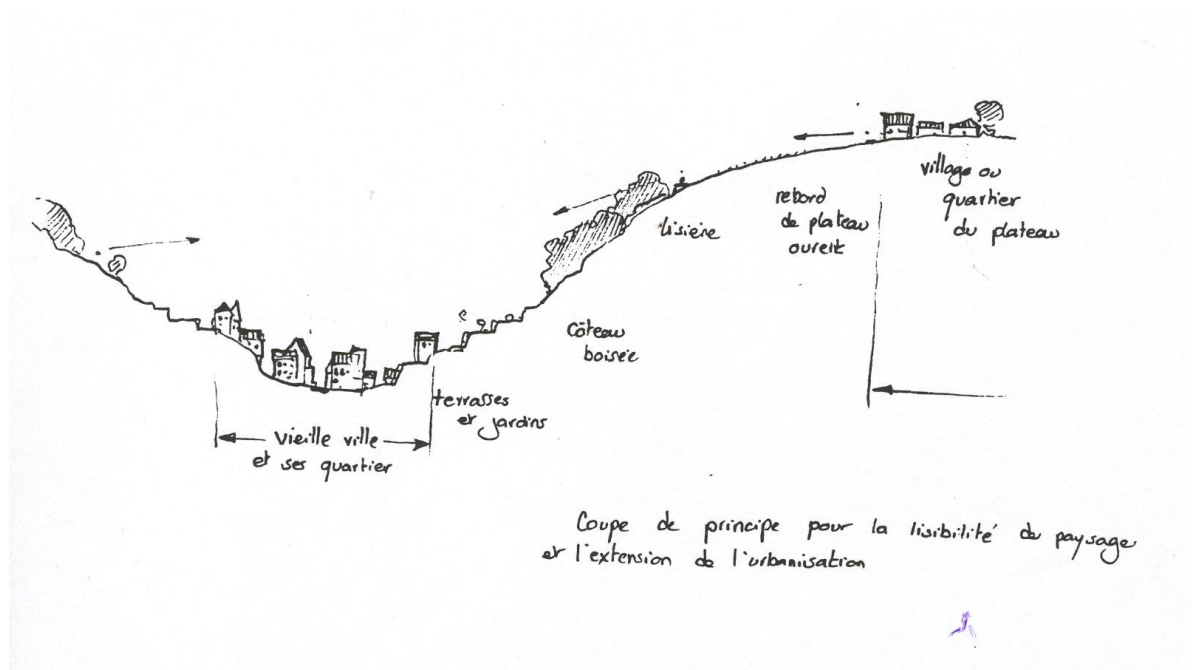 village ou
quartier
du plateau
rebord
de plateau
ouvert
lisière
Côteau
boisée
terrasses
et jardins
vieille ville
et ses quartier
Coupe de principe pour la lisibilité du paysage
et l'extension de l'urbanisation